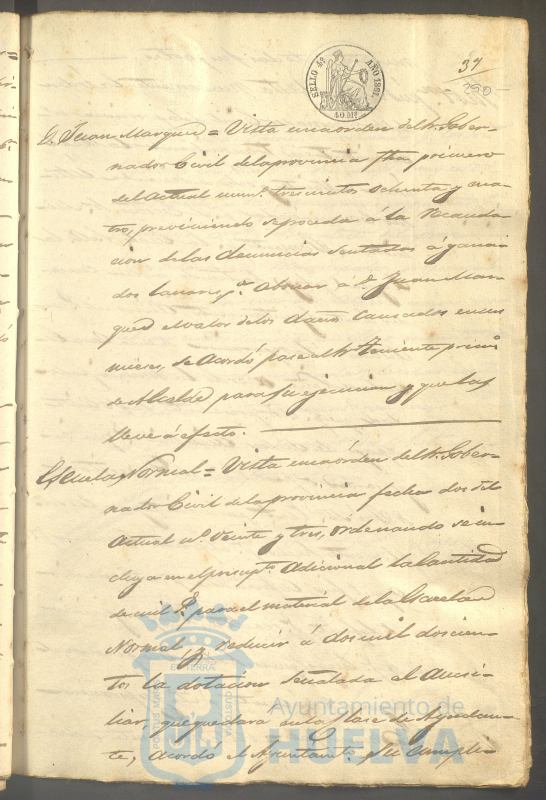 SELLO 4º AÑO 1861.
40 Mº
37
290
D. Juan Marquez = Vista una órden del Sr. Gober-
nador Civil de la provincia fha primero
del Actual num.º trescientos ochenta y cua-
tro, previniendo se proceda á la recauda-
cion de las denuncias sentadas á gana-
dos lanares pª abonar á D. Juan Mar-
quez el valor de los daños causados en sus
mieses, se acordó pase al Sr. teniente prim.º
de Alcalde para su ejecucion y que las
lleve á efecto.
Escuela Normal = Vista una órden del Sr. Gober-
nador Civil de la provincia fecha dos del
Actual nº veinte y tres, ordenando se in-
cluya en el presup.to Adicional la Cantidad
de mil para el material de la Escuela
Normal y reducir á dos mil doscien-
tos la dotacion señalada al Ausi-
liar, que quedará en la Clase de Ayudan-
te, acordó el Ayuntam.to su cumpli-
Ayuntamiento de
HUELVA